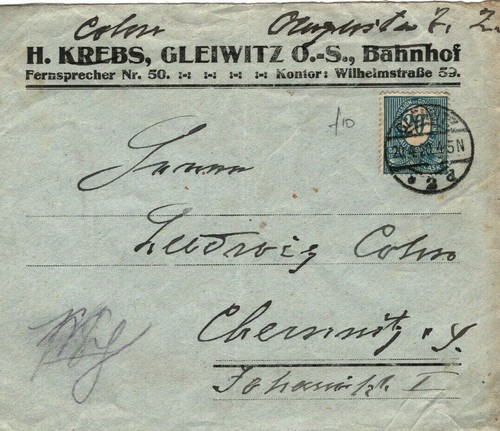 Cohn Augusta Z. Z.
H. KREBS, GLEIWITZ O.-S., Bahnhof
Fernsprecher Nr. 50. :-: :-: :-: :-: Kontor: Wilhelmstraße 59.
f10
20
4-5N
* 2 d
Herrn
Ludwig Cohn
Chemnitz i. S.